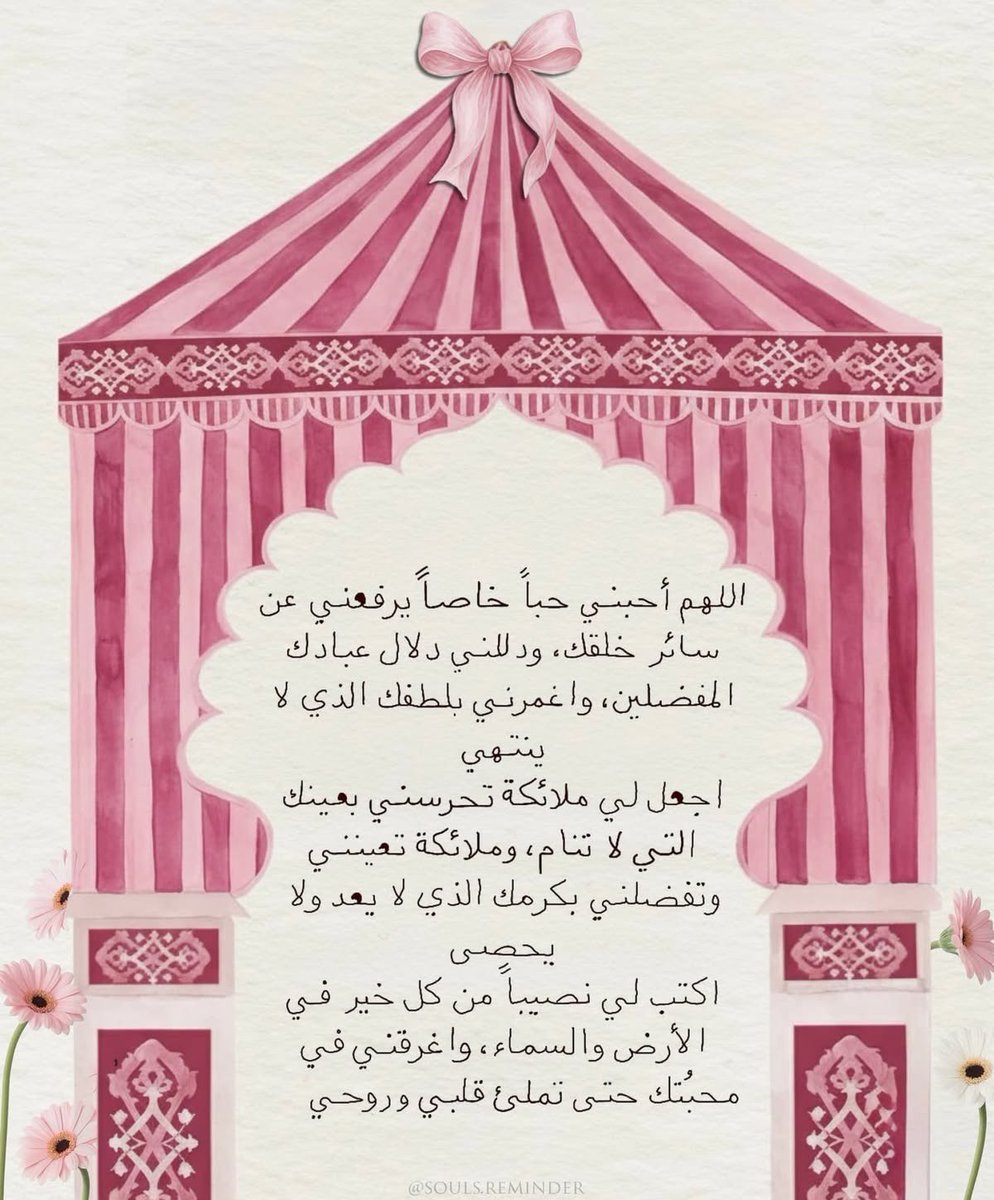 اللهم أحبني حباً خاصاً يرفعني عن
سائر خلقك، ودللني دلال عبادك
المفضلين، واغمرني بلطفك الذي لا
ينتهي
اجعل لي ملائكة تحرسني بعينك
التي لا تنام، وملائكة تعينني
وتفضلني بكرمك الذي لا يعد ولا
يحصى
اكتب لي نصيباً من كل خير في
الأرض والسماء، واغرقني في
محبُتك حتى تملئ قلبي وروحي
@SOULS.REMINDER